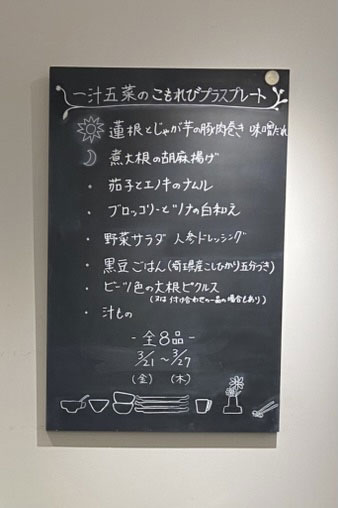 一汁五菜のこもれびプラスプレート
蓮根とじゃが芋の豚肉巻き 味噌だれ
煮大根の胡麻揚げ
・ 茄子とエノキのナムル
・ ブロッコリーとツナの白和え
・ 野菜サラダ 人参ドレッシング
・ 黒豆ごはん(埼玉県産こしひかり五分づき)
・ ビーツ色の大根ピクルス
(又は付け合わせの一品の場合もあり)
・ 汁もの
- 全8品 -
3/21 ~ 3/27
(金) (木)